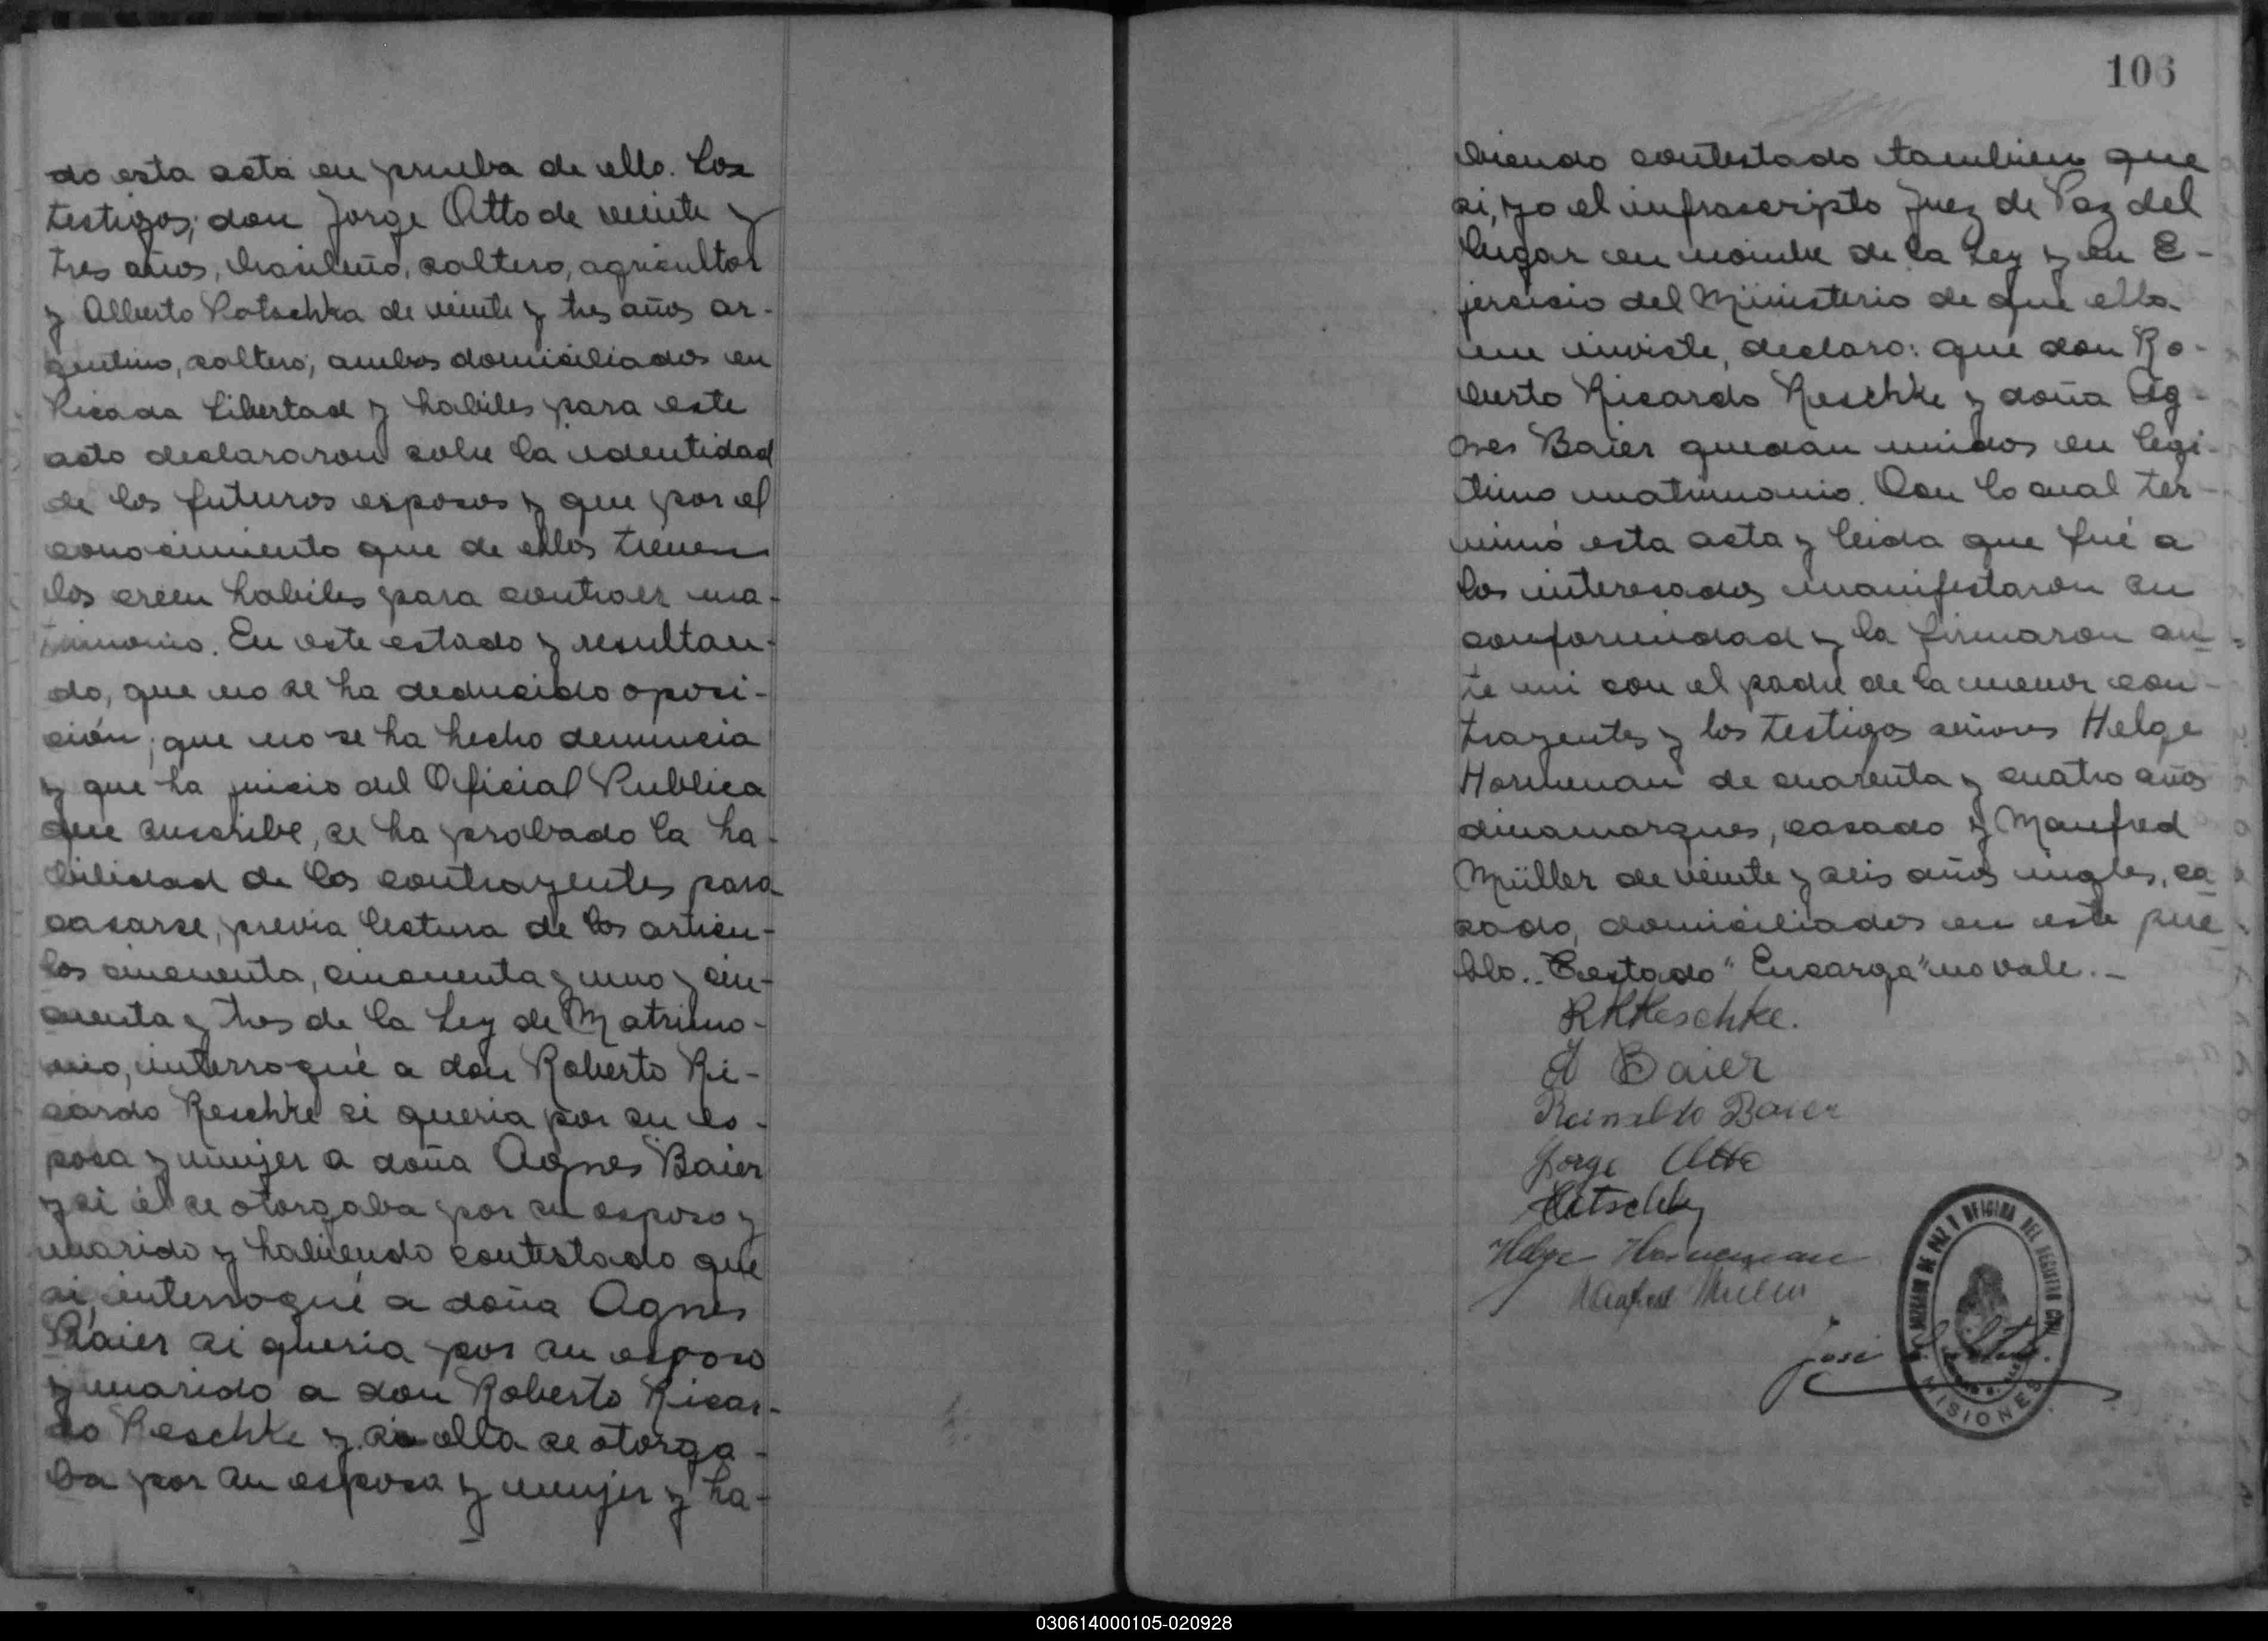 do esta acta en prueba de ello. Los
testigos; don Jorge Otto de veinte y
tres años, brasileño, soltero, agricultor
y Alberto Rotschka de veinte y tres años ar-
gentino, soltero, ambos domiciliados en
Picada Libertad y habiles para este
acto declararon sobre la identidad
de los futuros esposos y que por el
conocimiento que de ellos tienen
los creen habiles para contraer ma-
trimonio. En este estado y resultan-
do, que no se ha deducido oposi-
ción; que no se ha hecho denuncia
y que ha juicio del Oficial Publica
que suscribe, se ha probado la ha-
bilidad de los contrayentes para
casarse, previa lectura de los articu-
los cincuenta, cincuenta y uno y cin-
cuenta y tres de la Ley de Matrimo-
nio, interrogué a don Roberto Ri-
cardo Reschke si queria por su es-
posa y mujer a doña Agnes Baier
y si él se otorgaba por su esposo y
marido y habiendo contestado que
si, interrogué a doña Agnes
Baier si queria por su esposo
y marido a don Roberto Ricar-
do Reschke y si ella se otorga-
ba por su esposa y mujer y ha-
106
biendo contestado tambien que
si, yo el infrascripto Juez de Paz del
lugar en nombre de la Ley y en E-
jercicio del Ministerio de que ella
me inviste, declaro: que don Ro-
berto Ricardo Reschke y doña Ag-
nes Baier quedan unidos en legi-
timo matrimonio. Con lo cual ter-
minó esta acta y leida que fué a
los interesados manifestaron su
conformidad y la firmaron an-
te mi con el padre de la menor con-
trayentes y los testigos señores Helge
Horneman de cuarenta y cuatro años
dinamarques, casado y Manfred
Müller de veinte y seis años ingles, ca-
sado, domiciliados en este pue-
blo.- Testado "Encarga" no vale.-
RRReschke.
A Baier
Reinaldo Baier
Jorge Otto
Helge Horneman
Manfred Müller
José
JUZGADO DE PAZ Y OFICINA DEL REGISTRO CIVIL
MISIONES
030614000105-020928